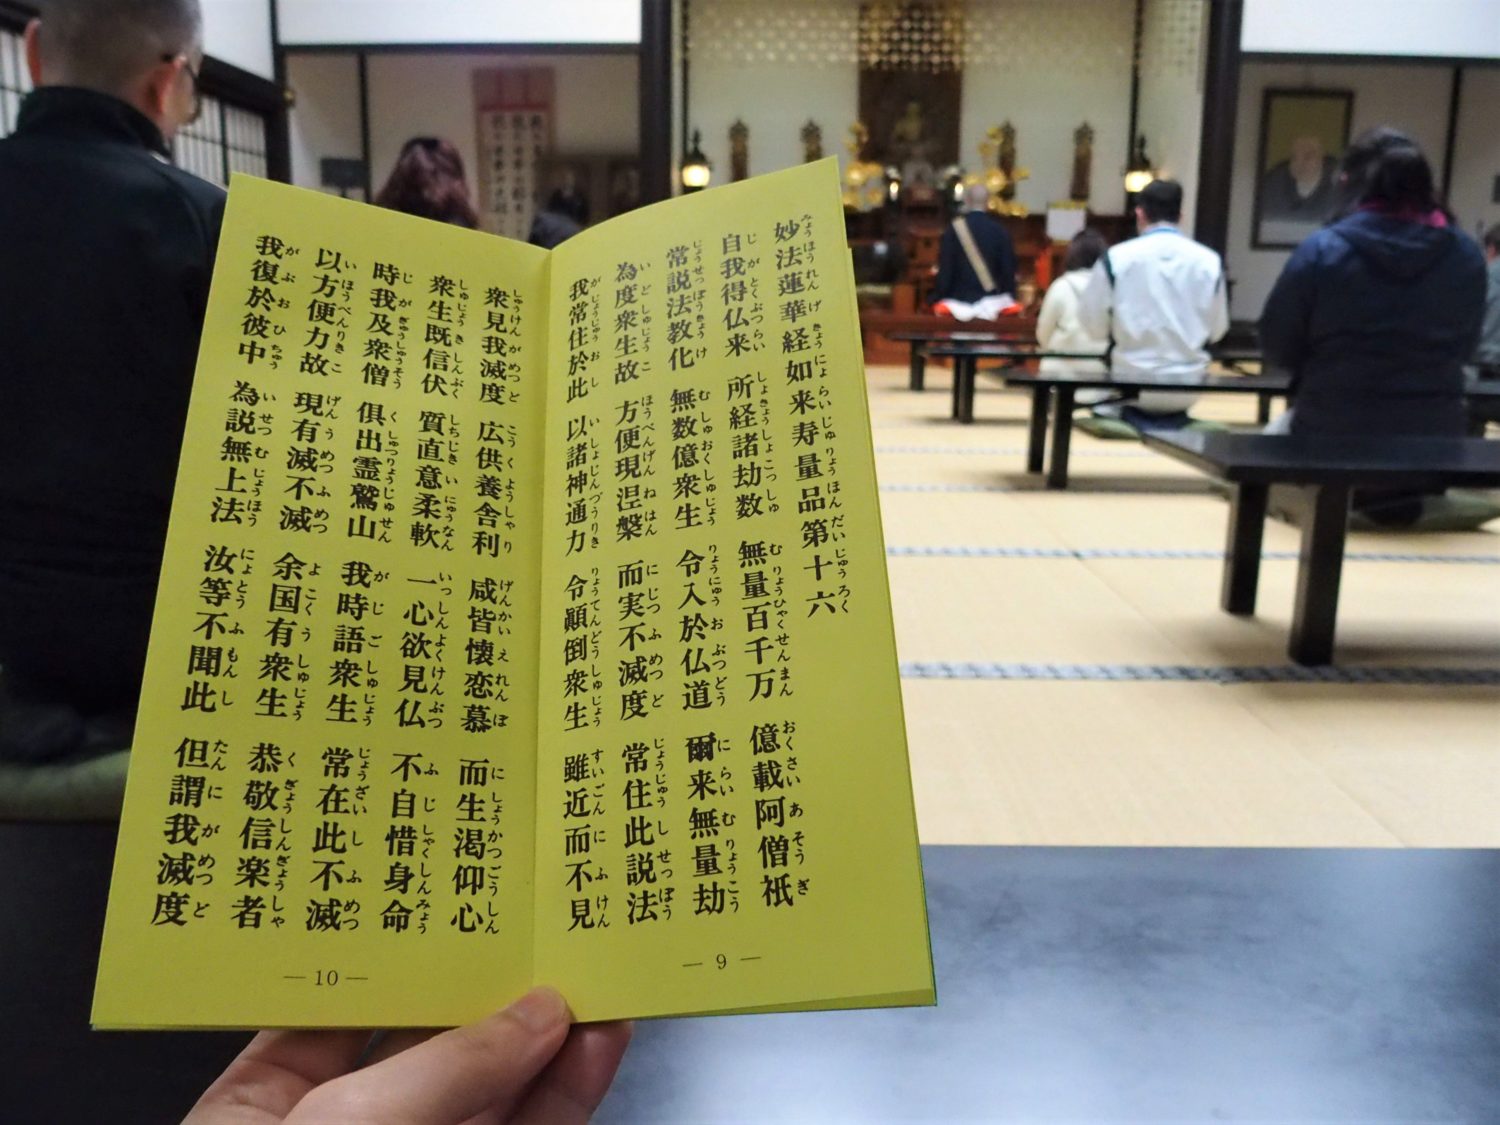 妙法蓮華経如来寿量品第十六
自我得仏来 所経諸劫数 無量百千万 億載阿僧祇
常説法教化 無数億衆生 令入於仏道 爾来無量劫
為度衆生故 方便現涅槃 而実不滅度 常住此説法
我常住於此 以諸神通力 令顛倒衆生 雖近而不見
衆見我滅度 広供養舎利 咸皆懐恋慕 而生渇仰心
衆生既信伏 質直意柔軟 一心欲見仏 不自惜身命
時我及衆僧 倶出霊鷲山 我時語衆生 常在此不滅
以方便力故 現有滅不滅 余国有衆生 恭敬信楽者
我復於彼中 為説無上法 汝等不聞此 但謂我滅度
— 9 —
— 10 —